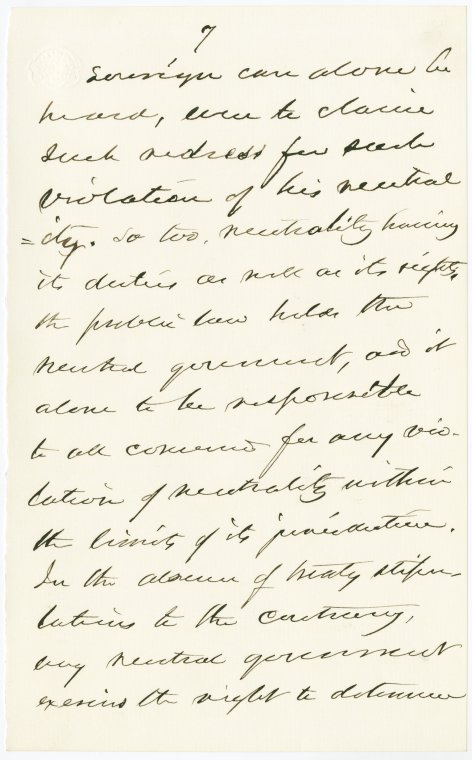 7
Sovereign can alone be
heard, even to claim
such redress for such
violation of his neutral
=ity. So too, neutrality having
its duties as well as its rights,
the public law holds the
neutral government, and it
alone to be responsible
to all concerned for any vio-
lation of neutrality within
the limits of its jurisdiction.
In the absence of treaty stipu-
lations to the contrary,
any neutral government
exercises the right to determine